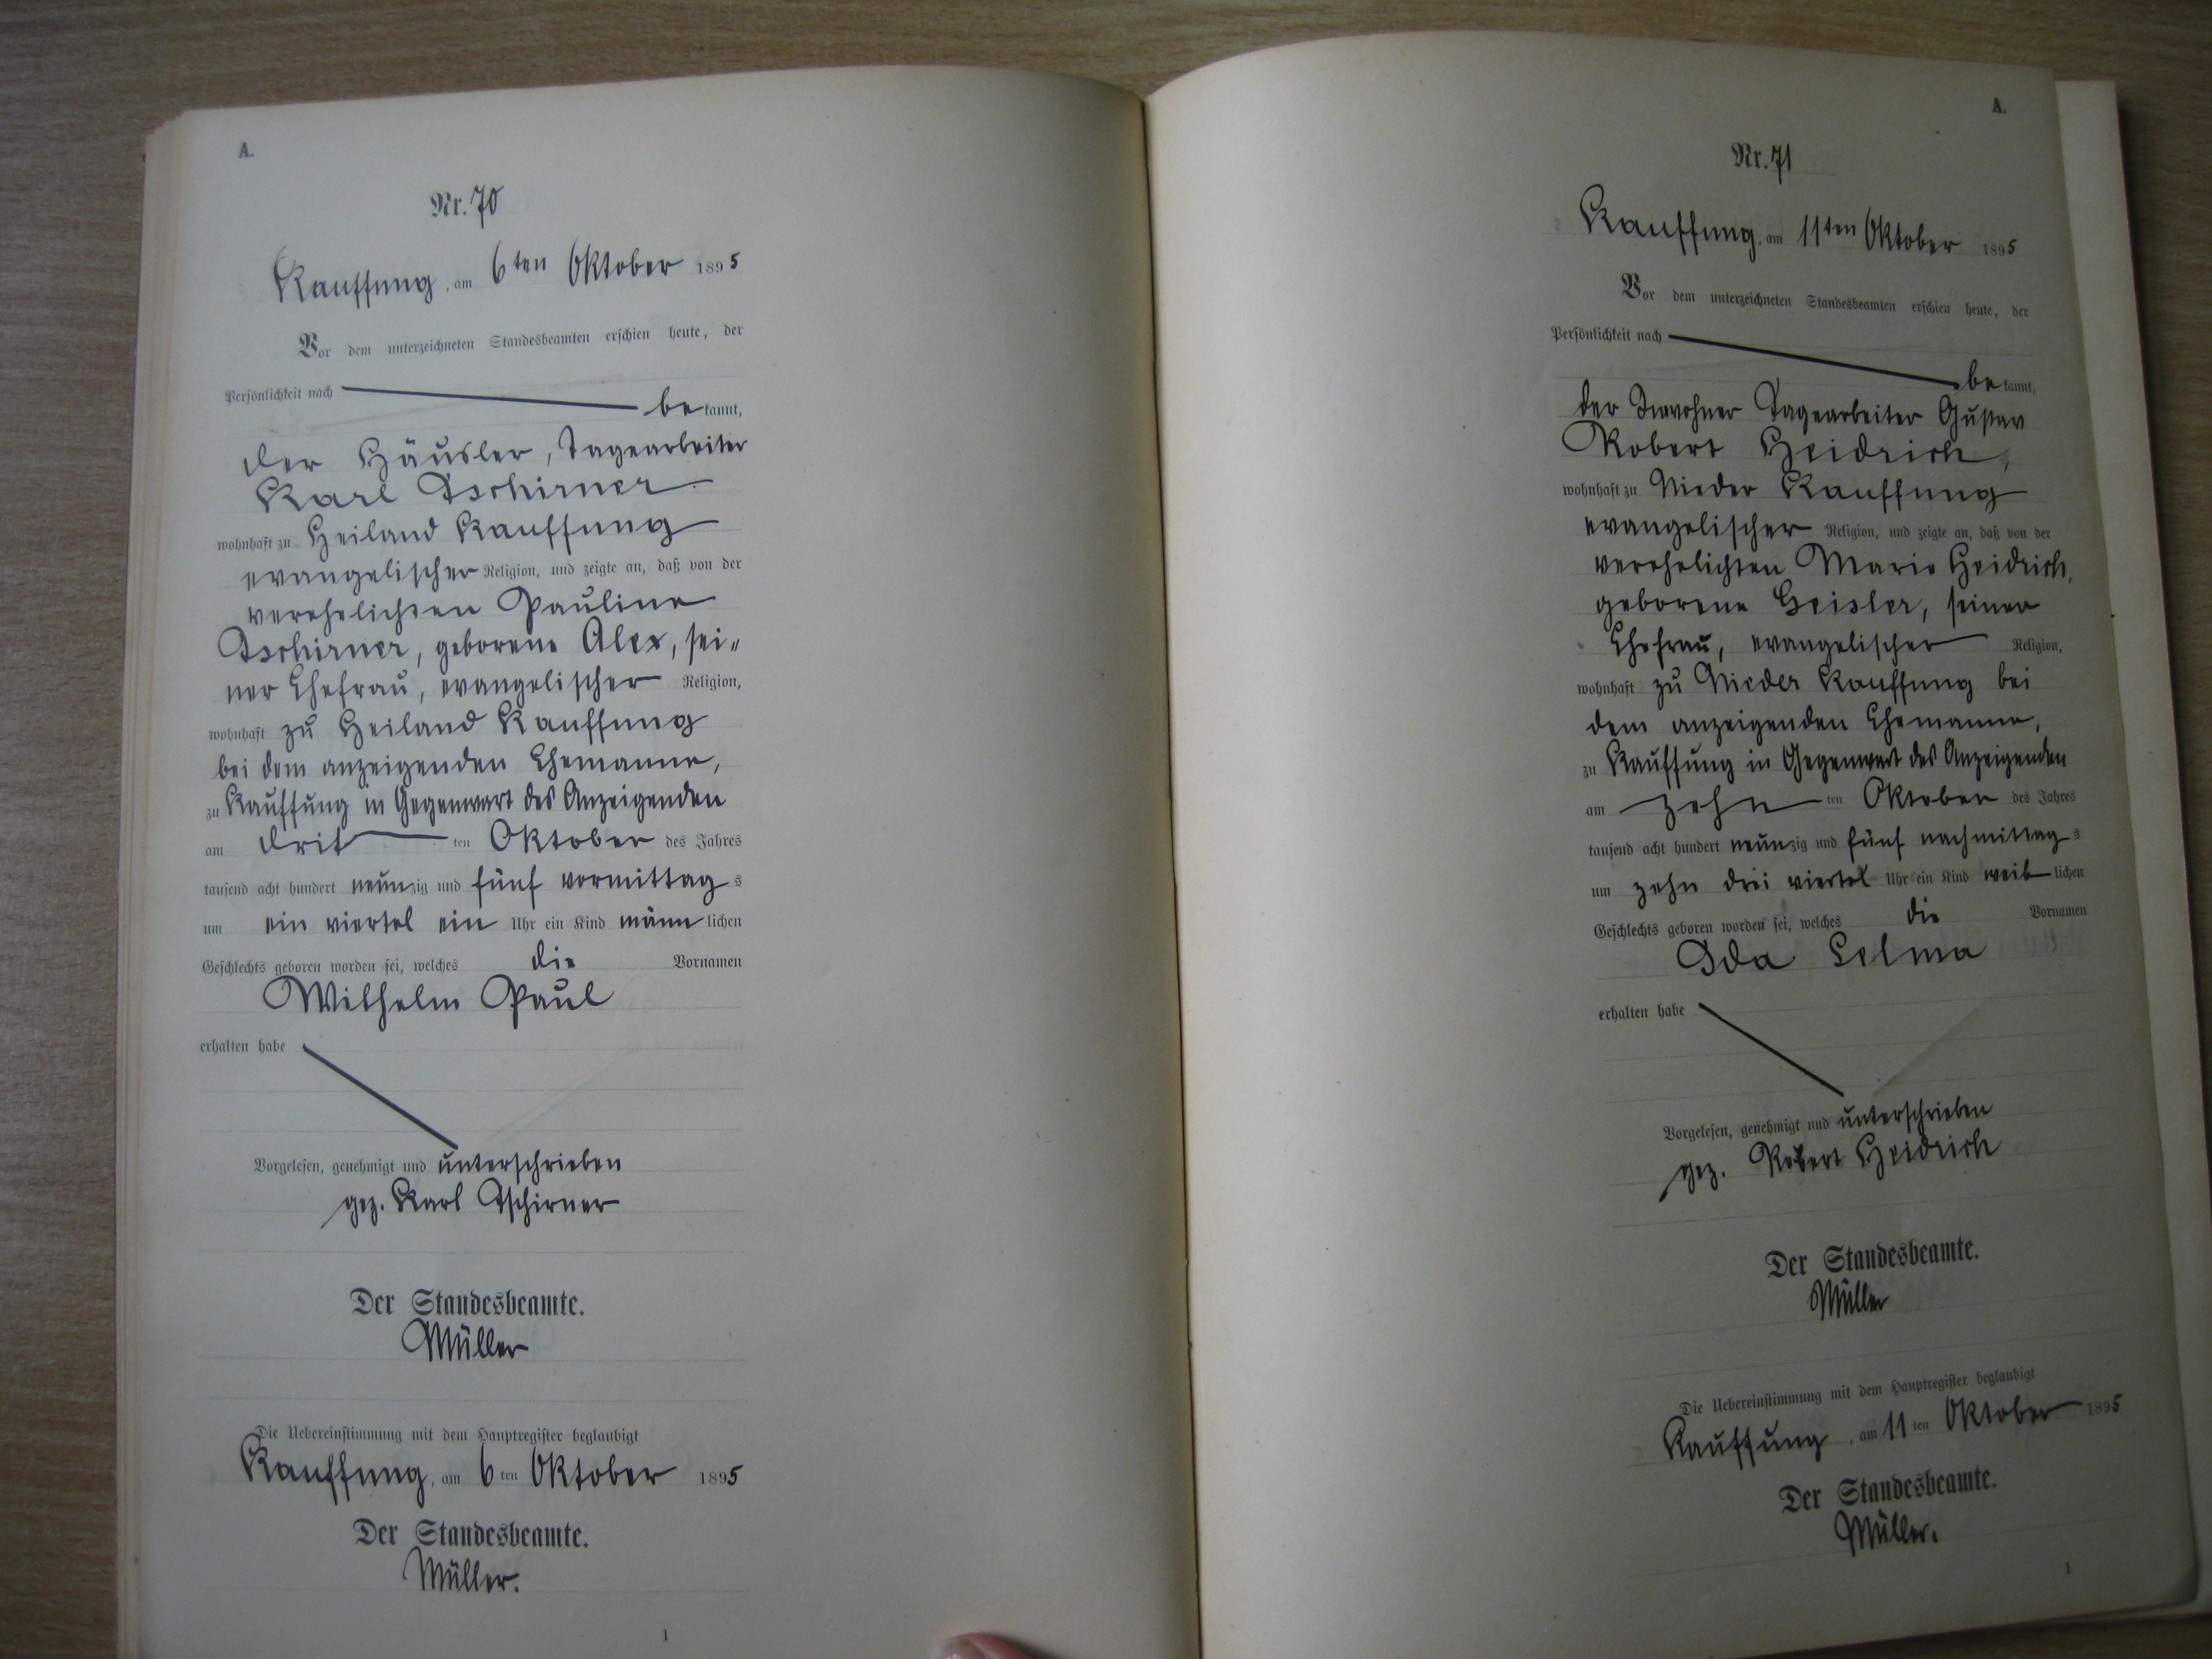 A.
Nr. 70
Kauffung, am 6ten Oktober 1895
Vor dem unterzeichneten Standesbeamten erschien heute, der
Persönlichkeit nach
bekannt,
der Häusler, Tagearbeiter
Karl Tschirner
wohnhaft zu Heiland Kauffung
evangelischer Religion, und zeigte an, daß von der
verehelichten Pauline
Tschirner, geborene Alex, sei=
ner Ehefrau, evangelischer Religion,
wohnhaft zu Heiland Kauffung
bei dem anzeigenden Ehemanne,
zu Kauffung in Gegenwart des Anzeigenden
am drit ten Oktober des Jahres
tausend acht hundert neunzig und fünf vormittags
um ein viertel ein Uhr ein Kind männlichen
Geschlechts geboren worden sei, welches die Vornamen
Wilhelm Paul
erhalten habe
Vorgelesen, genehmigt und unterschrieben
gez. Karl Tschirner
Der Standesbeamte.
Müller
Die Uebereinstimmung mit dem Hauptregister beglaubigt
Kauffung, am 6ten Oktober 1895
Der Standesbeamte.
Müller.
1
A.
Nr. 71
Kauffung, am 11ten Oktober 1895
Vor dem unterzeichneten Standesbeamten erschien heute, der
Persönlichkeit nach
bekannt,
der Inwohner Tagearbeiter Gustav
Robert Heidrich,
wohnhaft zu Nieder Kauffung
evangelischer Religion, und zeigte an, daß von der
verehelichten Marie Heidrich,
geborene Geisler, seiner
Ehefrau, evangelischer Religion,
wohnhaft zu Nieder Kauffung bei
dem anzeigenden Ehemanne,
zu Kauffung in Gegenwart des Anzeigenden
am zehn ten Oktober des Jahres
tausend acht hundert neunzig und fünf nachmittags
um zehn drei viertel Uhr ein Kind weiblichen
Geschlechts geboren worden sei, welches die Vornamen
Ida Selma
erhalten habe
Vorgelesen, genehmigt und unterschrieben
gez. Robert Heidrich
Der Standesbeamte.
Müller
Die Uebereinstimmung mit dem Hauptregister beglaubigt
Kauffung, am 11ten Oktober 1895
Der Standesbeamte.
Müller.
1